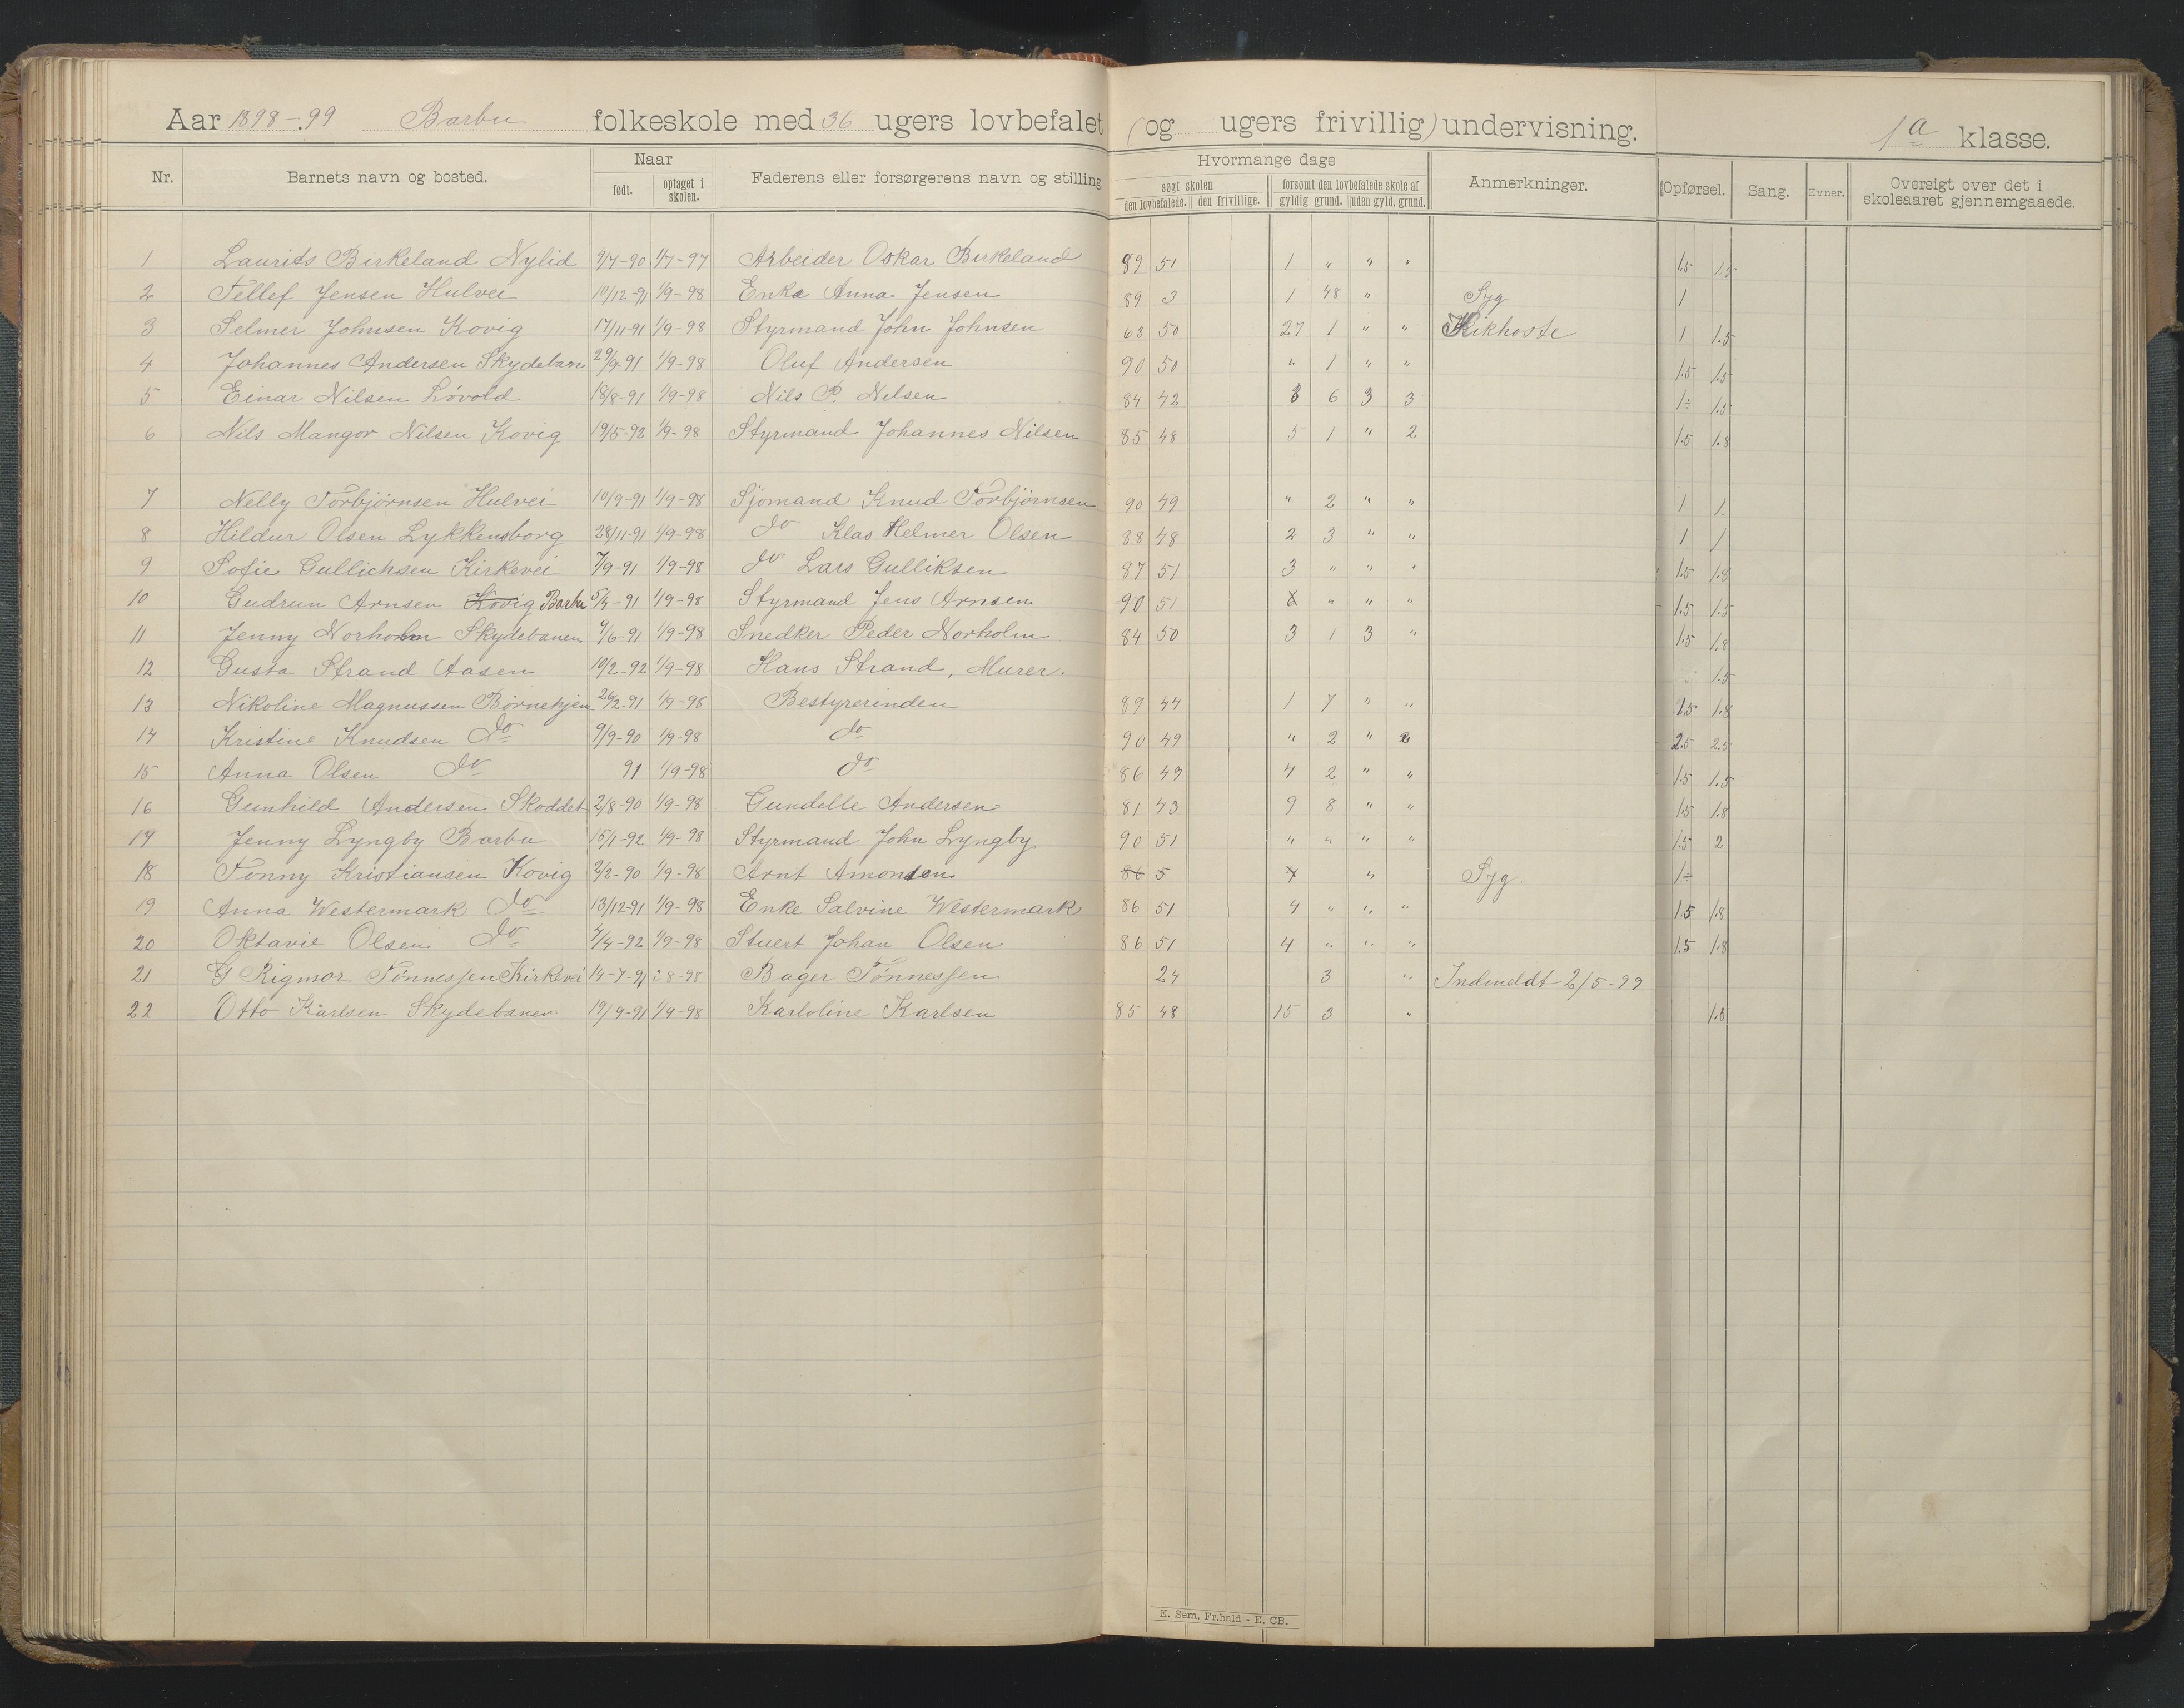 Aar 1898-99 Barbu folkeskole med 36 ugers lovbefalet (og ugers frivillig) undervisning. 1a klasse.
Nr. Barnets navn og bosted. Naar født. optaget i skolen. Faderens eller forsørgerens navn og stilling Hvormange dage søgt skolen den lovbefalede. den frivillige. forsømt den lovbefalede skole af gyldig grund. uden gyld. grund. Anmerkninger. Opførsel. Sang. Evner. Oversigt over det i skoleaaret gjennemgaaede.
1 Laurits Birkeland Nylid 4/7-90 1/7-97 Arbeider Oskar Birkeland 89 51 1 " " " 1.5 1.5
2 Tellef Jensen Hulvei 10/12-91 1/9-98 Enke Anna Jensen 89 3 1 48 " Syg 1
3 Selmer Johnsen Kovig 17/11-91 1/9-98 Styrmand John Johnsen 63 50 27 1 " " Kikhoste 1 1.5
4 Johannes Andersen Skydebanen 29/9-91 1/9-98 Oluf Andersen 90 50 " 1 " " 1.5 1.5
5 Einar Nilsen Løvold 18/8-91 1/9-98 Nils P. Nelsen 84 42 3 6 3 3 1÷ 1.5
6 Nils Mangor Nilsen Kovig 19/5-92 1/9-98 Styrmand Johannes Nilsen 85 48 5 1 " 2 1.5 1.8
7 Nelly Torbjörnsen Hulvei 10/9-91 1/9-98 Sjömand Knud Torbjörnsen 90 49 " 2 " " 1 1
8 Hildur Olsen Lykkensborg 28/11-91 1/9-98 do Klas Helmer Olsen 88 48 2 3 " " 1 1
9 Sofie Gullichsen Kirkevei 7/9-91 1/9-98 do Lars Gulliksen 87 51 3 " " " 1.5 1.8
10 Gudrun Arnsen Kovig Barbu 5/4-91 1/9-98 Styrmand Jens Arnsen 90 51 " " " 1.5 1.5
11 Jenny Norholm Skydebanen 9/6-91 1/9-98 Snedker Peder Norholm 84 50 3 1 3 " 1.5 1.8
12 Gusta Strand Aasen 10/2-92 1/9-98 Hans Strand, Murer. 1.5
13 Nikoline Magnussen Børnehjem 26/2-91 1/9-98 Bestyrerinden 89 44 1 7 " " 1.5 1.8
14 Kristine Knudsen do 9/9-90 1/9-98 do 90 49 " 2 " 2.5 2.5
15 Anna Olsen do 91 1/9-98 do 86 49 4 2 " " 1.5 1.5
16 Gunhild Andersen Skoddet 2/8-90 1/9-98 Gundelle Andersen 81 43 9 8 " " 1.5 1.8
17 Jenny Lyngby Barbu 15/1-92 1/9-98 Styrmand John Lyngby 90 51 " " " " 1.5 2
18 Tonny Kristiansen Kovig 2/2-90 1/9-98 Arnt Amondsen 86 5 4 " Syg. 1÷
19 Anna Westermark do 13/12-91 1/9-98 Enke Salvine Westermark 86 51 4 " " " 1.5 1.8
20 Oktavie Olsen do 4/4-92 1/9-98 Stuert Johan Olsen 86 51 4 " " " 1.5 1.8
21 G Rigmor Tönnessen Kirkevei 14-7-91 8-98 Bager Tönnessen 24 3 " Indmeldt 2/5-99
22 Otto Karlsen Skydebanen 19/9-91 1/9-98 Karloline Karlsen 85 48 15 3 " 1.5
E. Sem, Fr.hald - E. CB.